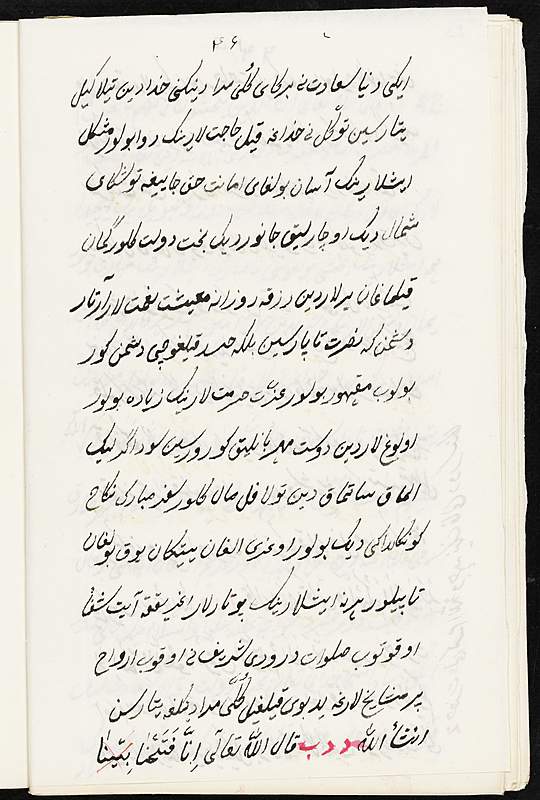 ۴۶
ایکی دنیا سعادت نی هر کمای کُلّی مداد دینکنی خدادین تیلاکیل
یتارسین توکّل نی خداغه قیل حاجت لارینک روا بولور مشکل
ایشلارینک آسان بولغای امانت حق جاییغه توشکای
شمال دیک اوچارلیق جانور دیک بخت دولت کلور کمان
قیلماغان یرلاردین رزقه روزانه معیشت نعمت لار آرتار
دشمن که نصرت تاپارسین بلکه حسد قیلغوچی دشمن کور
بولوب مقهور بولور عزّت حرمت لارینک زیاده بولور
اولوغ لاردین دوست مهربانلیق کورورسین سوداکرلیک
الماق ساتماق دین تولا فل مال کلور سفر مبارک نکاح
کونکلداکی دیک بولور اوغری الغان ییتکان یوق بولغان
تاپیلور هرنه ایشلارینک یوتارلار اغریققه آیت شفا
اوقوتوب صلوات درودی شریف نی اوقوب ارواح
پیر مشایخ لارغه یدبوی قیلغیل کُلّی مدادینکغه یتارسن
انشأ الله ددب قال اللّٰه تعالٰی اِنَّا فَتَحْنَا بیّنا